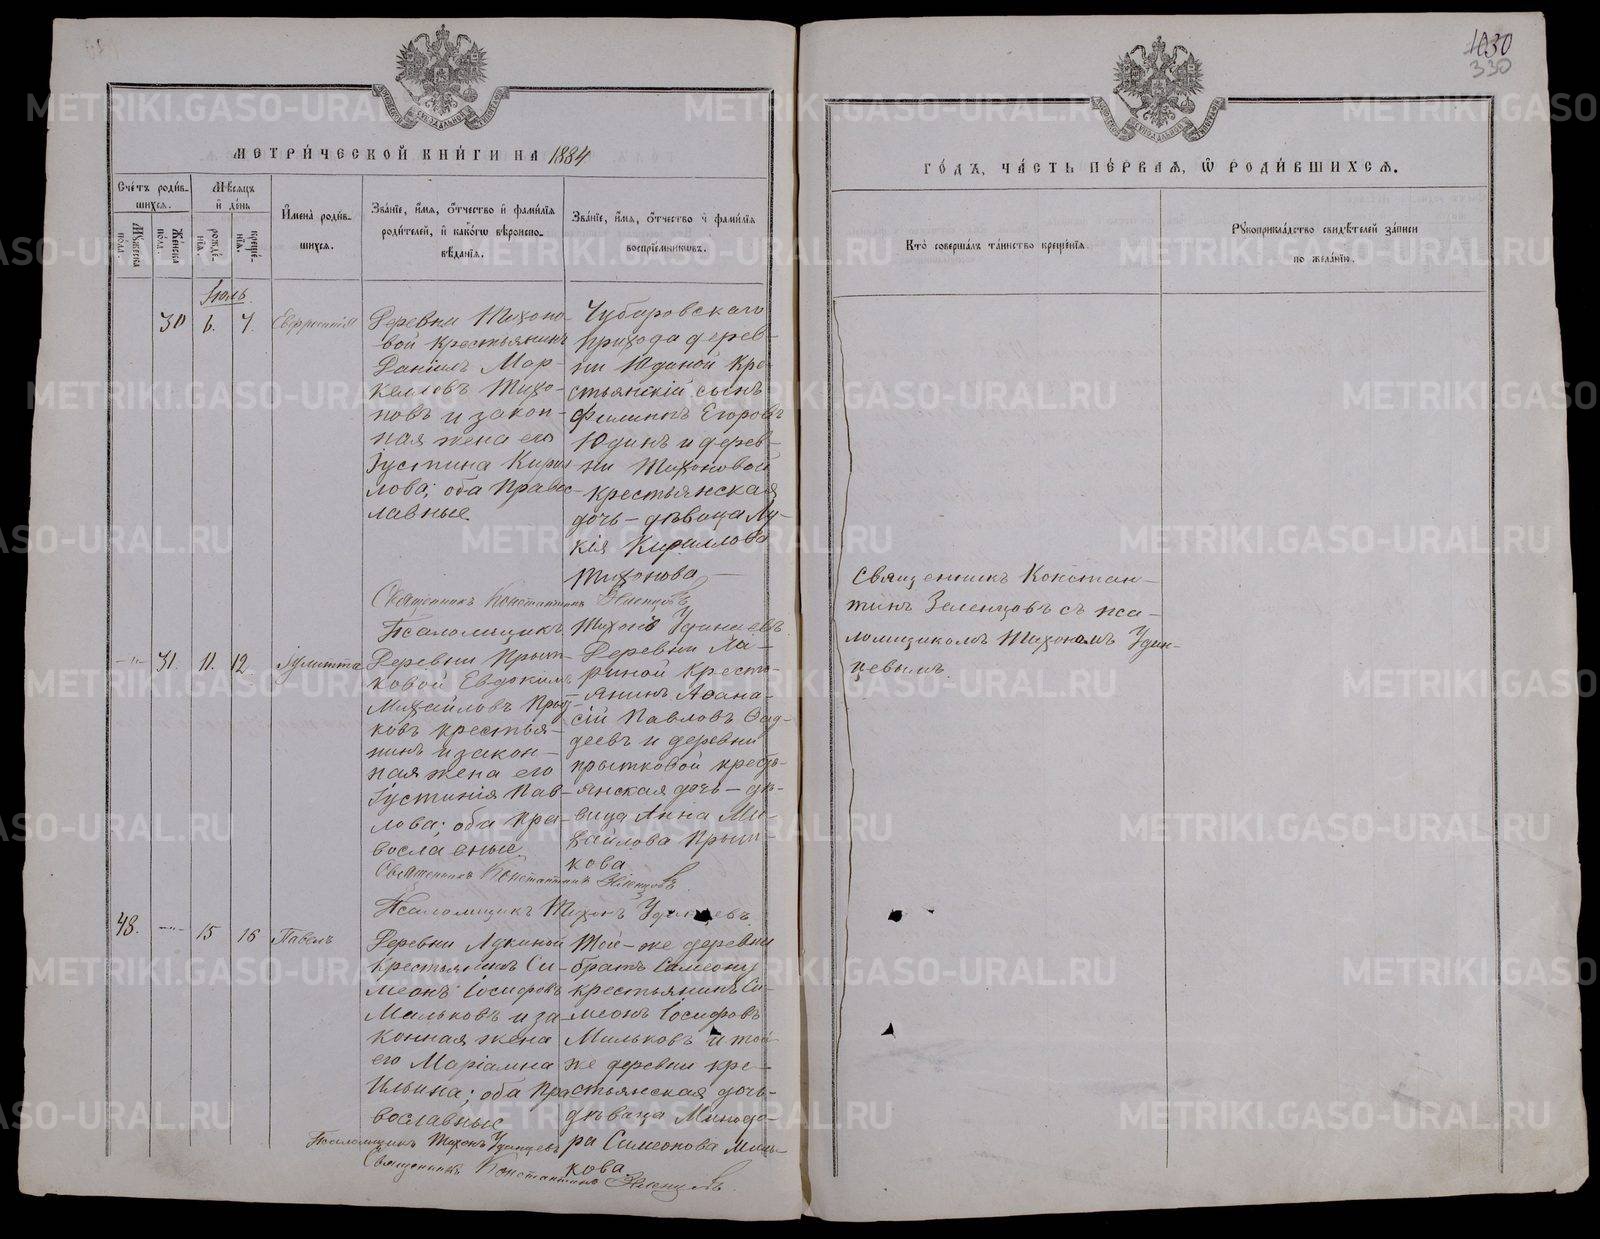 1030
330
МЕТРИ́ЧЕСКОЙ КНИ́ГИ НА 1884
ГО́ДЪ, ЧА́СТЬ ПЕ́РВАЯ, Ѡ РОДИ́ВШИХСЯ.
Сче́тъ роди́в-
шихся.
Му́жеска по́ла.
Же́нска по́ла.
Мѣ́сяцъ
и де́нь
рожде́-
нія
креще́-
нія.
Имена̀ роди́в-
шихся.
Зва́ніе, и́мя, о́тчество и фами́лія
роди́телей, и како́гѡ вѣроиспо-
вѣ́данія.
Зва́ніе, и́мя, о́тчество и фами́лія
воспріе́мниковъ.
Кто̀ соверша́лъ та́инство креще́нія.
Рꙋкоприкла́дство свидѣ́телей за́писи
по жела́нію.
Іюль
30 6. 7. Евфросинія
Деревни Тихоно-
вой крестьянинъ
Даніилъ Мар-
келловъ Тихо-
новъ и закон-
ная жена его
Іустина Кирил-
лова; оба право-
славные
Чубаровскаго
прихода дерев-
ни Юдиной кре-
стьянскій сынъ
Филиппъ Егоровъ
Юдинъ и дерев-
ни Тихоновой
крестьянская
дочь - дѣвица Лу-
кія Кириллова
Тихонова
Священникъ Константинъ Зеленцовъ
Псаломщикъ Тихонъ Удинцевъ
-"- 31. 11. 12. Іулитта
Деревни Прыт-
ковой Евдокимъ
Михайловъ Прыт-
ковъ крестья-
нинъ и закон-
ная жена его
Іустинія Пав-
лова; оба пра-
вославные
Деревни Ла-
риной кресть-
янинъ Афана-
сій Павловъ Фад-
деевъ и деревни
Прытковой кресть-
янская дочь - дѣ-
вица Анна Ми-
хайлова Прыт-
кова
Священникъ Константинъ Зеленцовъ
Псаломщикъ Тихонъ Удинцевъ
48. -"- 15 16 Павелъ
Деревни Лукиной
крестьянинъ Си-
меонъ Іосифовъ
Мильковъ и за-
конная жена
его Маріамна
Ильина; оба пра-
вославные
Той-же деревни
братъ Симеону
крестьянинъ Си-
меонъ Іосифовъ
Мильковъ и той-
же деревни кре-
стьянская дочь-
дѣвица Минодо-
ра Симеонова Миль-
кова
Псаломщикъ Тихонъ Удинцевъ
Священникъ Константинъ Зеленцовъ
Священникъ Констан-
тинъ Зеленцовъ съ пса-
ломщикомъ Тихономъ Удин-
цевымъ.
METRIKI.GASO-URAL.RU